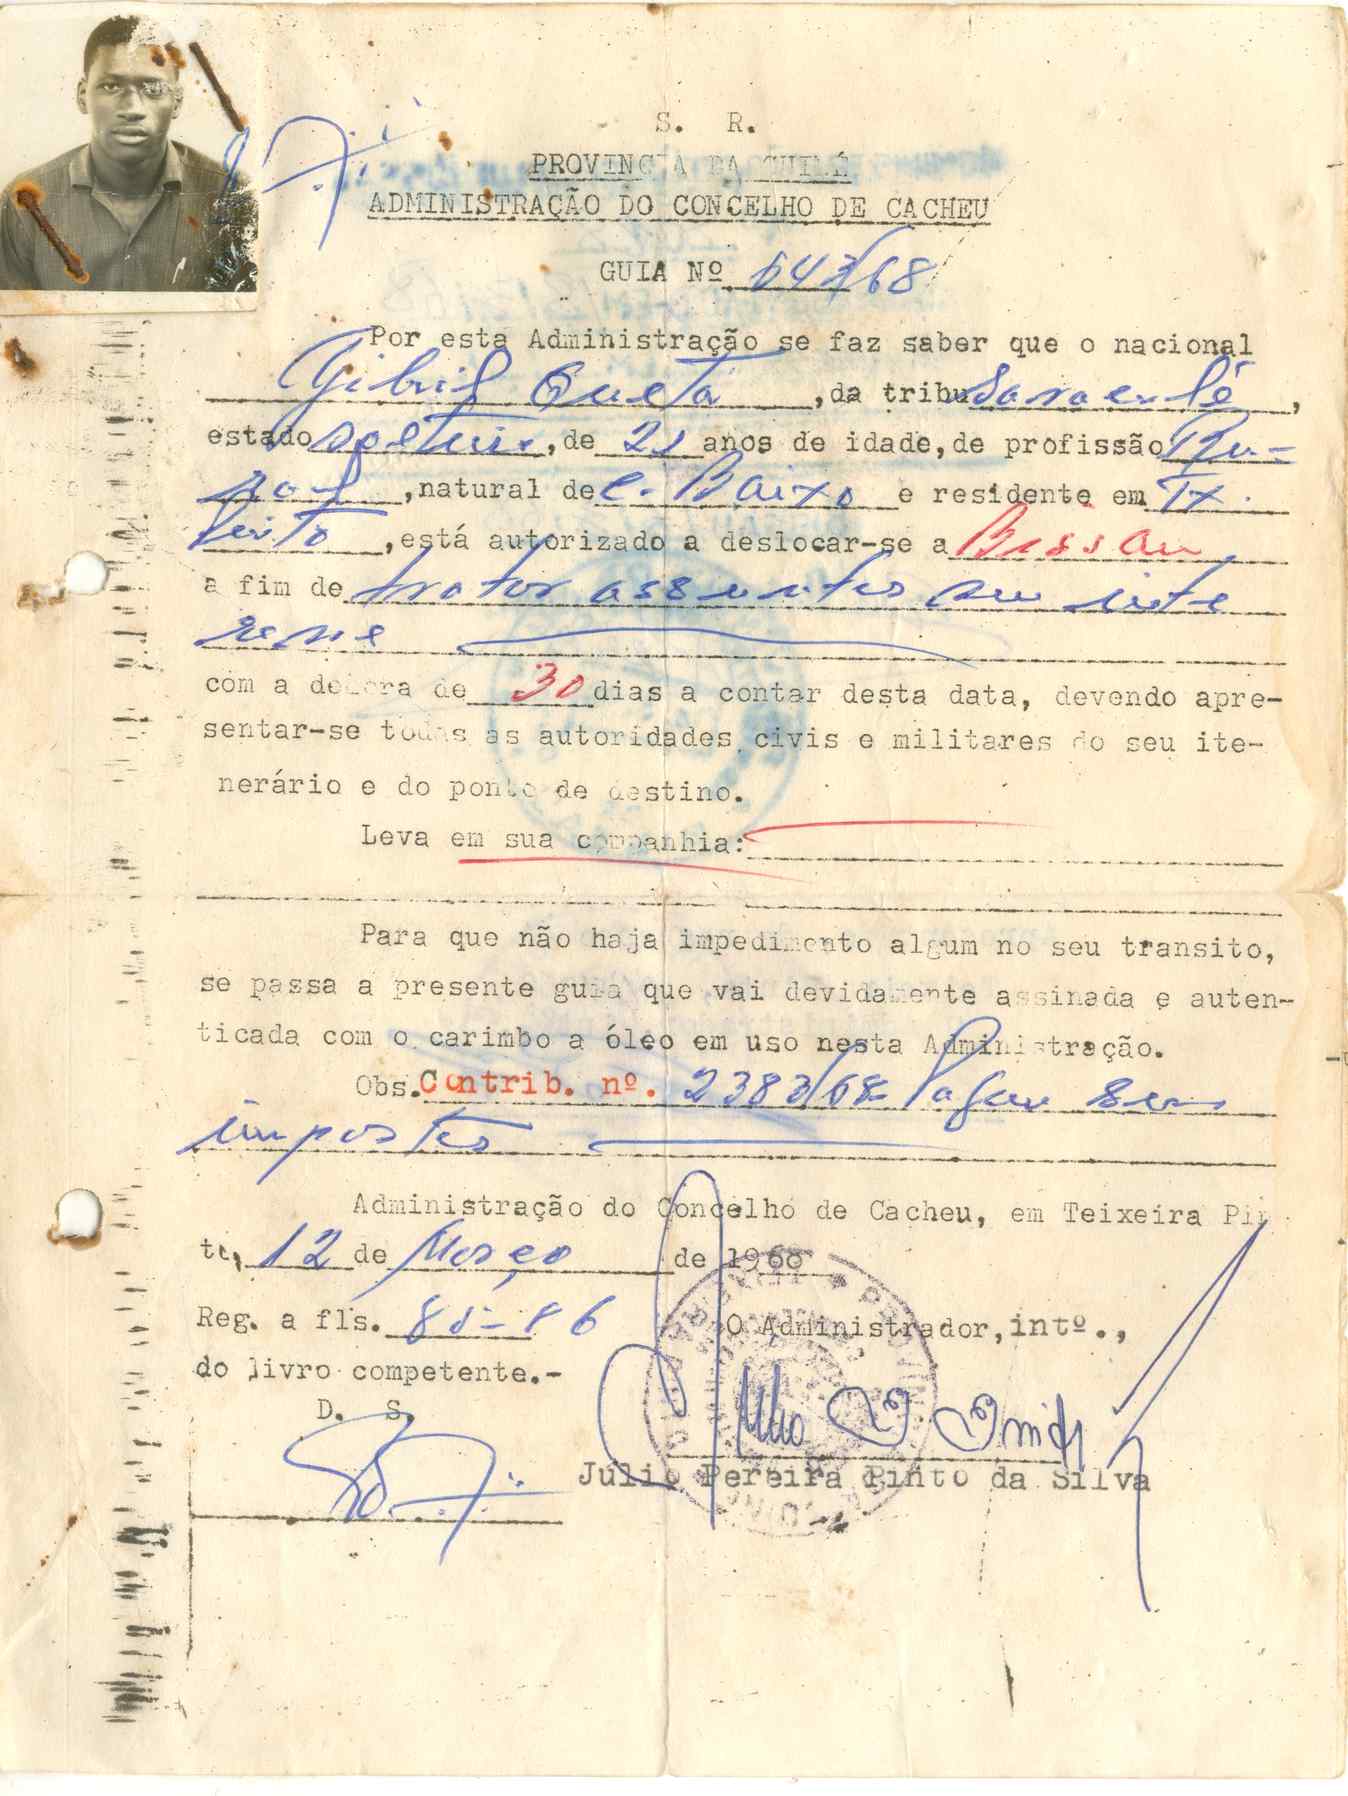 S. R.
PROVINCIA DA GUINÉ
ADMINISTRAÇÃO DO CONCELHO DE CACHEU
GUIA Nº 643/68
Por esta Administração se faz saber que o nacional
Gibril Queta, da tribu Saracolé,
estado solteiro, de 21 anos de idade, de profissão
, natural de C. Baixo e residente em Tx.
Pinto, está autorizado a deslocar-se a Bissau
a fim de tratar assuntos seu inte
resse
com a demora de 30 dias a contar desta data, devendo apre-
sentar-se todas as autoridades civis e militares do seu ite-
nerário e do ponto de destino.
Leva em sua companhia:
Para que não haja impedimento algum no seu transito,
se passa a presente guia que vai devidamente assinada e auten-
ticada com o carimbo a óleo em uso nesta Administração.
Obs. Contrib. nº. 2383/68 Pagou seus
impostos
Administração do Concelho de Cacheu, em Teixeira Pin
to, 12 de Março de 1968
Reg. a fls. 85-86 O Administrador, intº.,
do livro competente.-
D. S.
Júlio Pereira Pinto da Silva